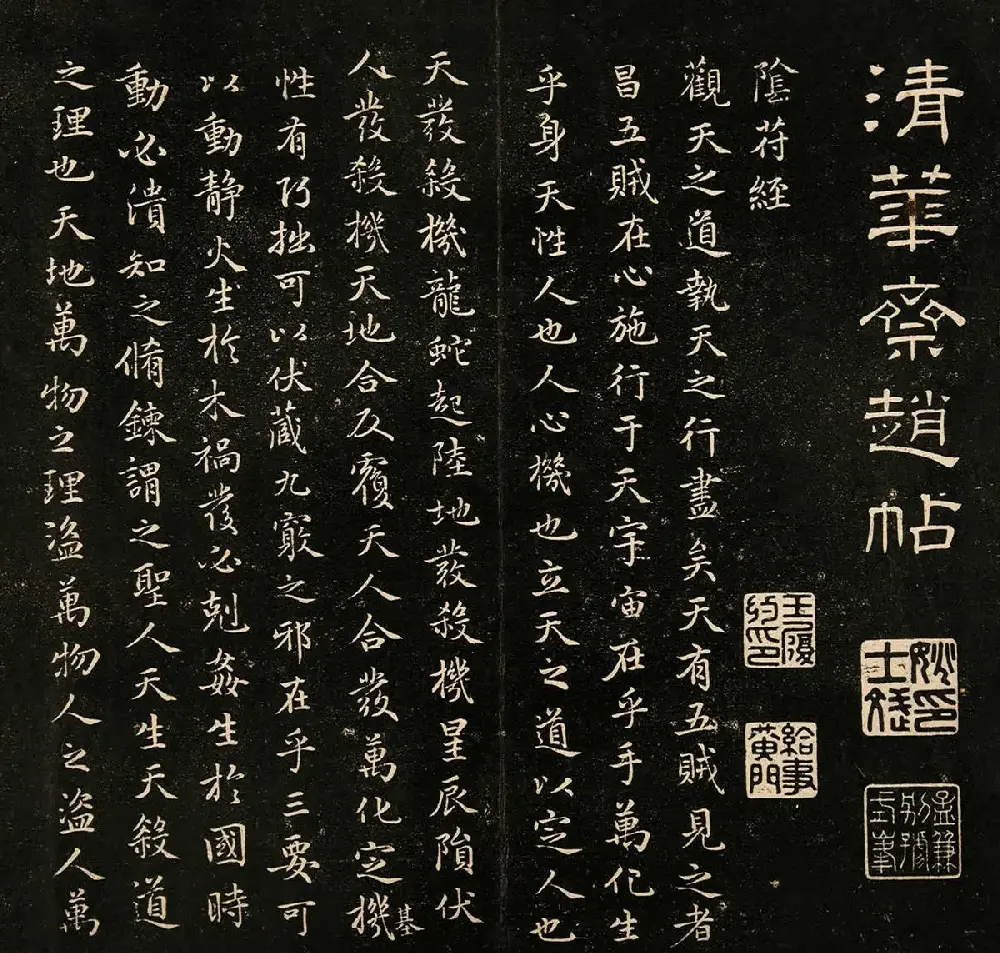 清華齋趙帖
給事黃門
隂苻經
觀天之道執天之行盡矣天有五賊見之者
昌五賊在心施行于天宇宙在乎手萬化生
乎身天性人也人心機也立天之道以定人也
天發殺機龍蛇起陸地發殺機星辰隕伏
人發殺機天地合反覆天人合發萬化定機基
性有巧拙可以伏藏九竅之邪在乎三要可
以動靜火生於木禍發必剋姦生於國時
動必潰知之脩鍊謂之聖人天生天殺道
之理也天地萬物之理盜萬物人之盜人萬